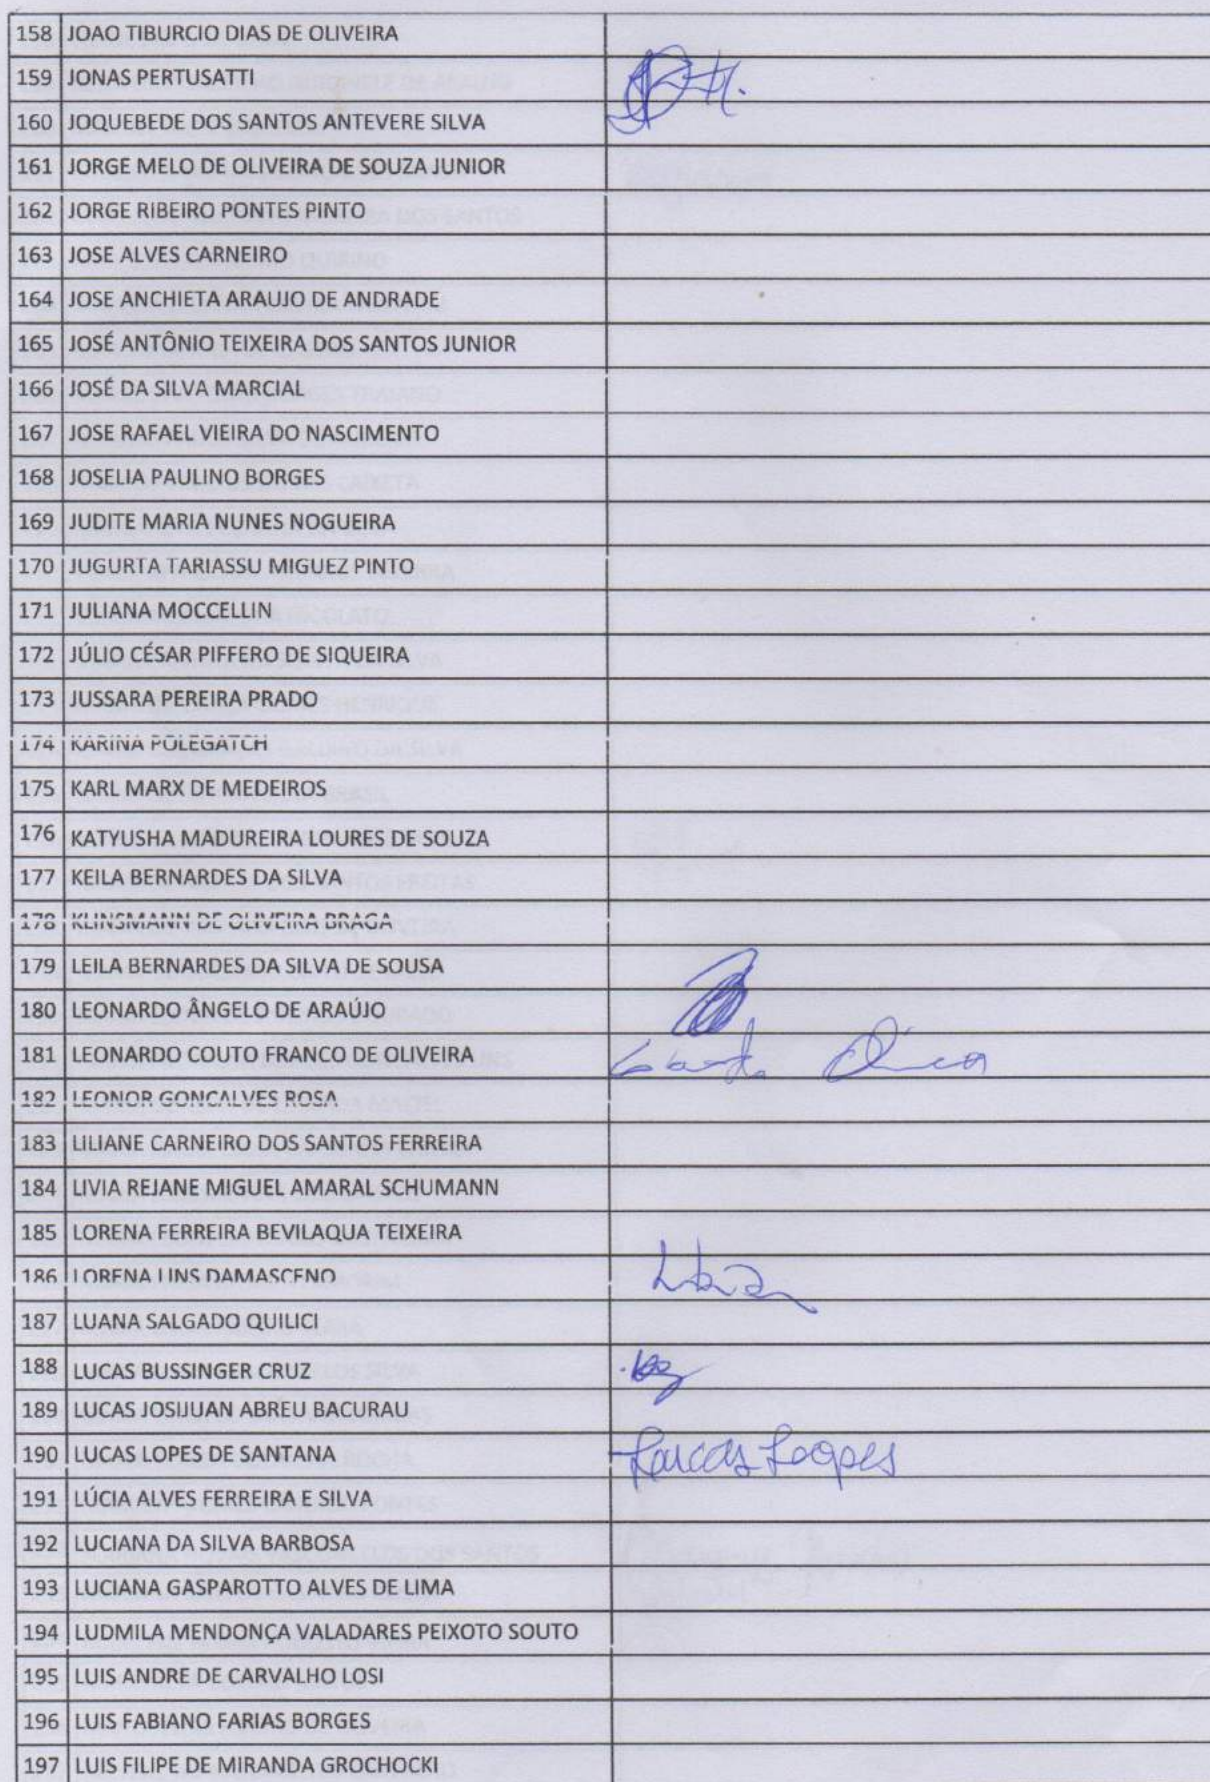 158 JOAO TIBURCIO DIAS DE OLIVEIRA
159 JONAS PERTUSATTI
160 JOQUEBEDE DOS SANTOS ANTEVERE SILVA
161 JORGE MELO DE OLIVEIRA DE SOUZA JUNIOR
162 JORGE RIBEIRO PONTES PINTO
163 JOSE ALVES CARNEIRO
164 JOSE ANCHIETA ARAUJO DE ANDRADE
165 JOSÉ ANTÔNIO TEIXEIRA DOS SANTOS JUNIOR
166 JOSÉ DA SILVA MARCIAL
167 JOSE RAFAEL VIEIRA DO NASCIMENTO
168 JOSELIA PAULINO BORGES
169 JUDITE MARIA NUNES NOGUEIRA
170 JUGURTA TARIASSU MIGUEZ PINTO
171 JULIANA MOCCELLIN
172 JÚLIO CÉSAR PIFFERO DE SIQUEIRA
173 JUSSARA PEREIRA PRADO
174 KARINA POLEGATCH
175 KARL MARX DE MEDEIROS
176 KATYUSHA MADUREIRA LOURES DE SOUZA
177 KEILA BERNARDES DA SILVA
178 KLINSMANN DE OLIVEIRA BRAGA
179 LEILA BERNARDES DA SILVA DE SOUSA
180 LEONARDO ÂNGELO DE ARAÚJO
181 LEONARDO COUTO FRANCO DE OLIVEIRA
182 LEONOR GONCALVES ROSA
183 LILIANE CARNEIRO DOS SANTOS FERREIRA
184 LIVIA REJANE MIGUEL AMARAL SCHUMANN
185 LORENA FERREIRA BEVILAQUA TEIXEIRA
186 LORENA LINS DAMASCENO
187 LUANA SALGADO QUILICI
188 LUCAS BUSSINGER CRUZ
189 LUCAS JOSIJUAN ABREU BACURAU
190 LUCAS LOPES DE SANTANA Lucas Lopes
191 LÚCIA ALVES FERREIRA E SILVA
192 LUCIANA DA SILVA BARBOSA
193 LUCIANA GASPAROTTO ALVES DE LIMA
194 LUDMILA MENDONÇA VALADARES PEIXOTO SOUTO
195 LUIS ANDRE DE CARVALHO LOSI
196 LUIS FABIANO FARIAS BORGES
197 LUIS FILIPE DE MIRANDA GROCHOCKI